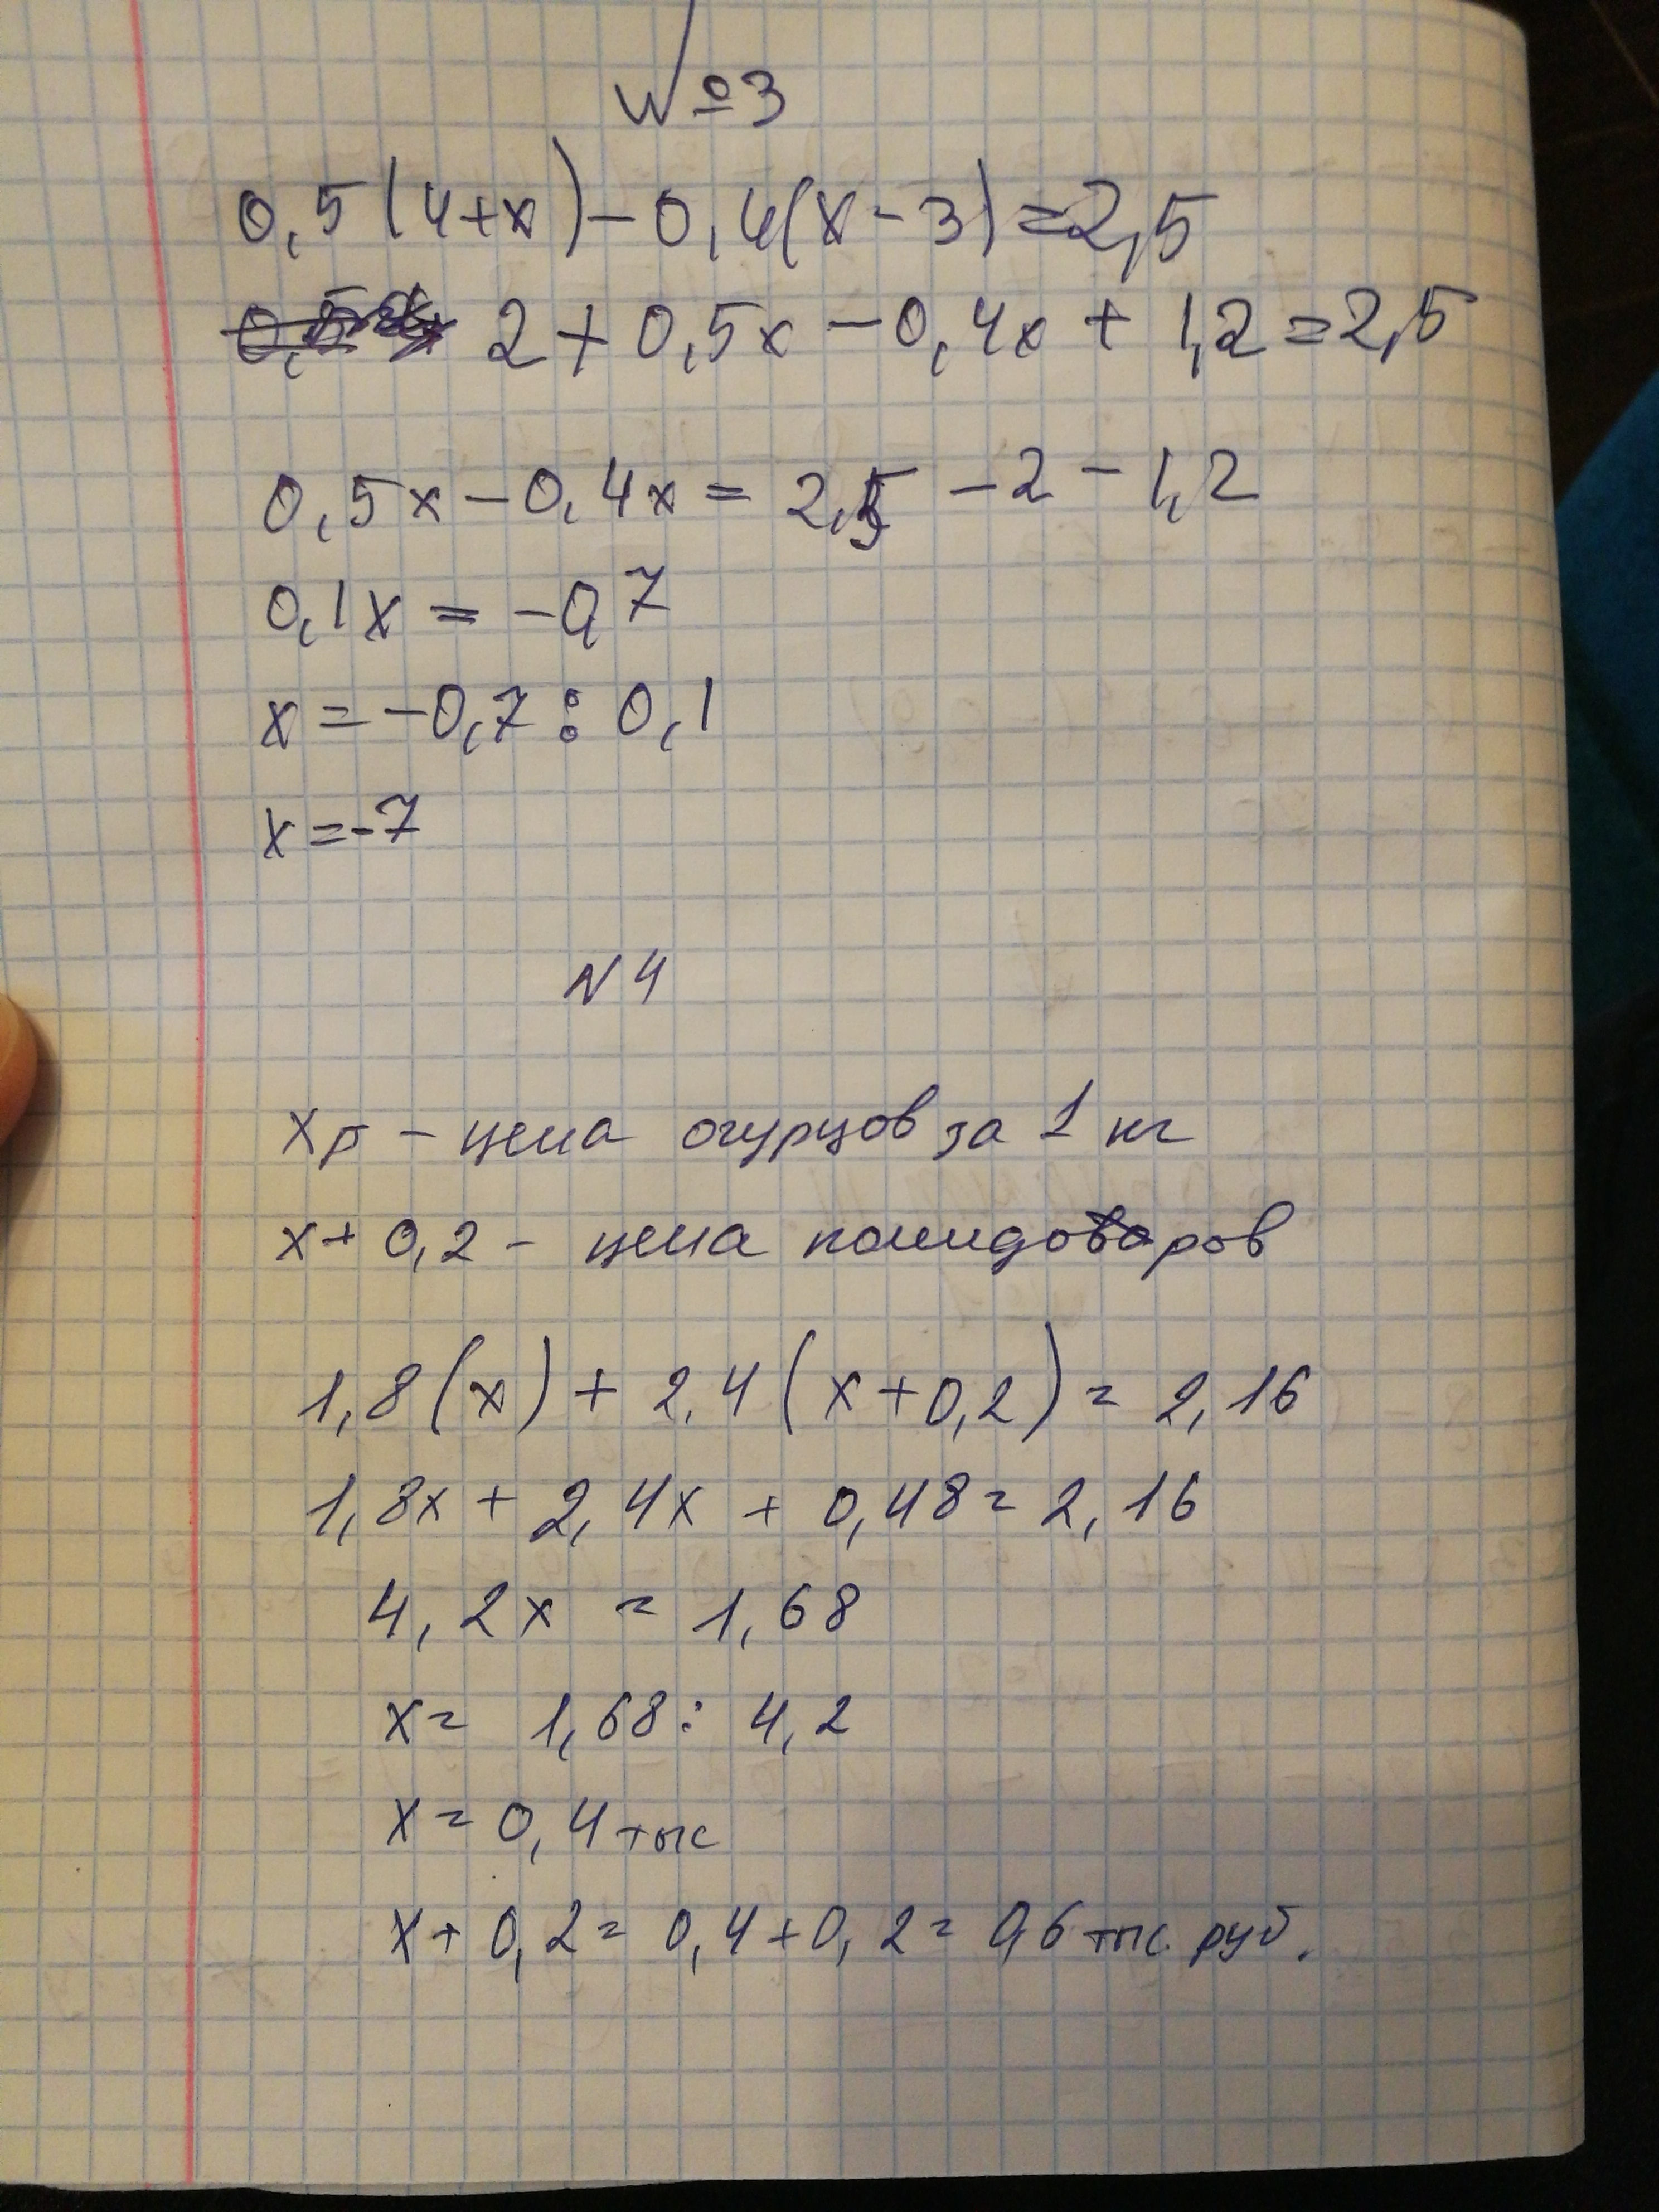 №3
0,5(4+x)-0,4(x-3)=2,5
2+0,5x-0,4x+1,2=2,5
0,5x-0,4x=2,5-2-1,2
0,1x=-0,7
x=-0,7:0,1
x=-7
N4
xр - цена огурцов за 1 кг
x+0,2 - цена помидоров
1,8(x)+2,4(x+0,2)=2,16
1,8x+2,4x+0,48=2,16
4,2x=1,68
x=1,68:4,2
x=0,4 тыс
x+0,2=0,4+0,2=0,6 тыс. руб.